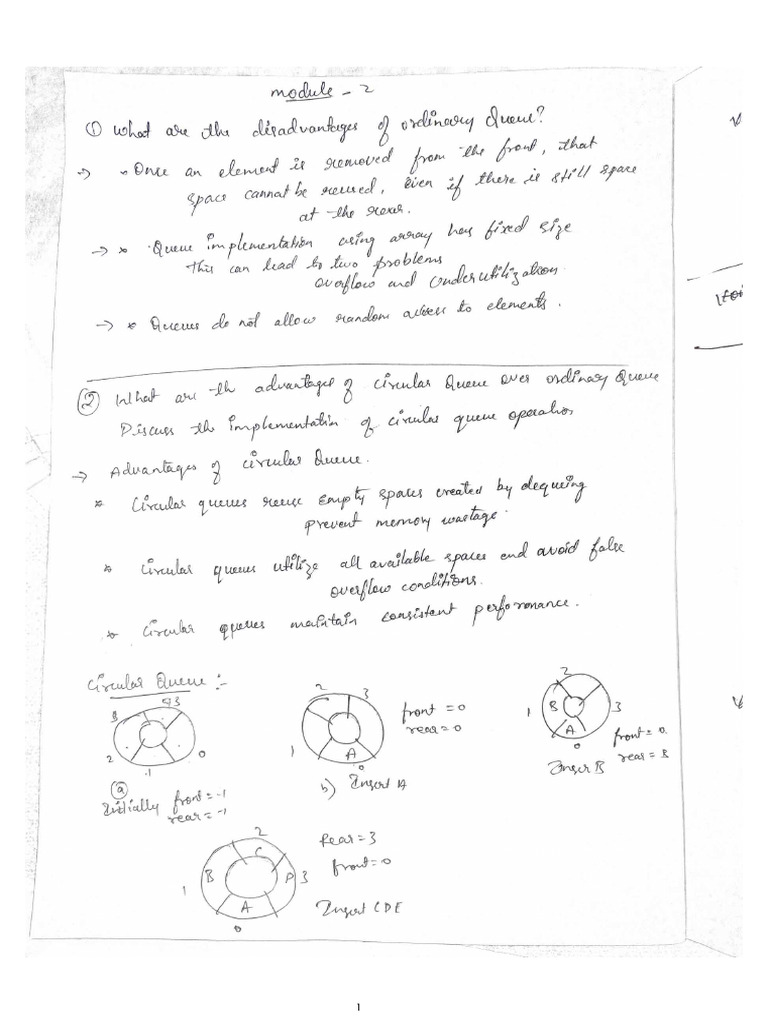 module - 2
① What are the disadvantages of ordinary Queue?
→ * Once an element is removed from the front, that
space cannot be reused, even if there is still space
at the rear.
→ * Queue implementation using array has fixed size
This can lead to two problems
overflow and underutilization.
→ * Queues do not allow random access to elements.
② What are th advantages of circular Queue over ordinary Queue
Discuss the implementation of circular queue operation
→ Advantages of circular Queue.
* Circular queues reuse empty spaces created by dequeing
prevent memory wastage.
* Circular queues utilize all available spaces and avoid false
overflow conditions.
* Circular queues maintain consistent performance.
Circular Queue :-
3
2
1
0
ⓐ
Initially front = -1
rear = -1
2
3
1
A
0
front = 0
rear = 0
b) Insert A
2
1
B
3
A
0
front = 0
rear = B
Insert B
2
C
1
B
D
3
A
0
Rear = 3
front = 0
Insert CDE
1